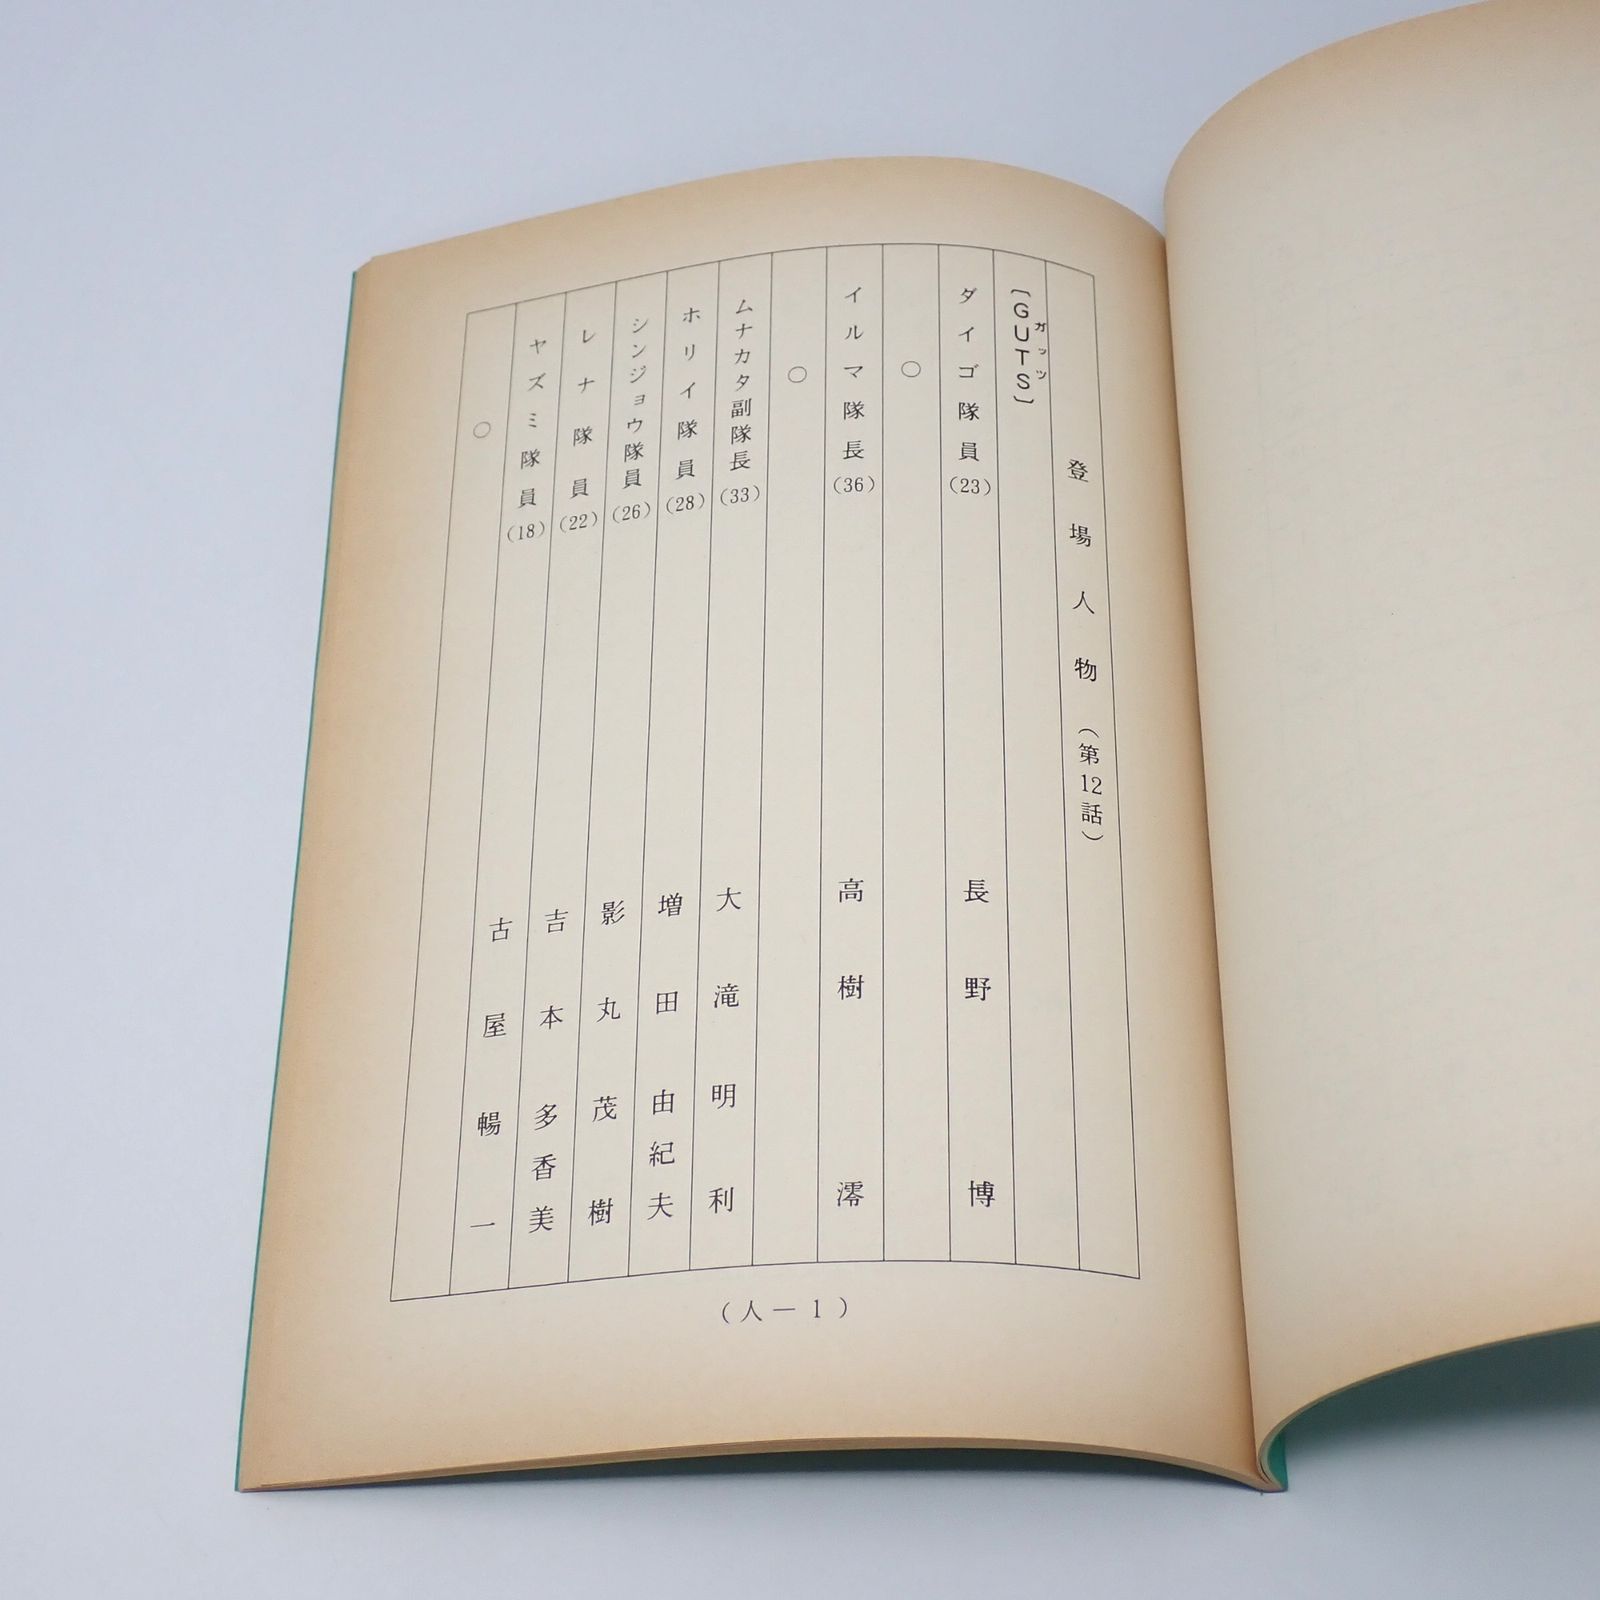 登場人物（第12話）
〔GUTS〕
ガッツ
ダイゴ隊員(23) 長野博
○
イルマ隊長(36) 高樹澪
○
ムナカタ副隊長(33) 大滝明利
ホリイ隊員(28) 増田由紀夫
シンジョウ隊員(26) 影丸茂樹
レナ隊員(22) 吉本多香美
ヤズミ隊員(18) 古屋暢一
○
（人－1）